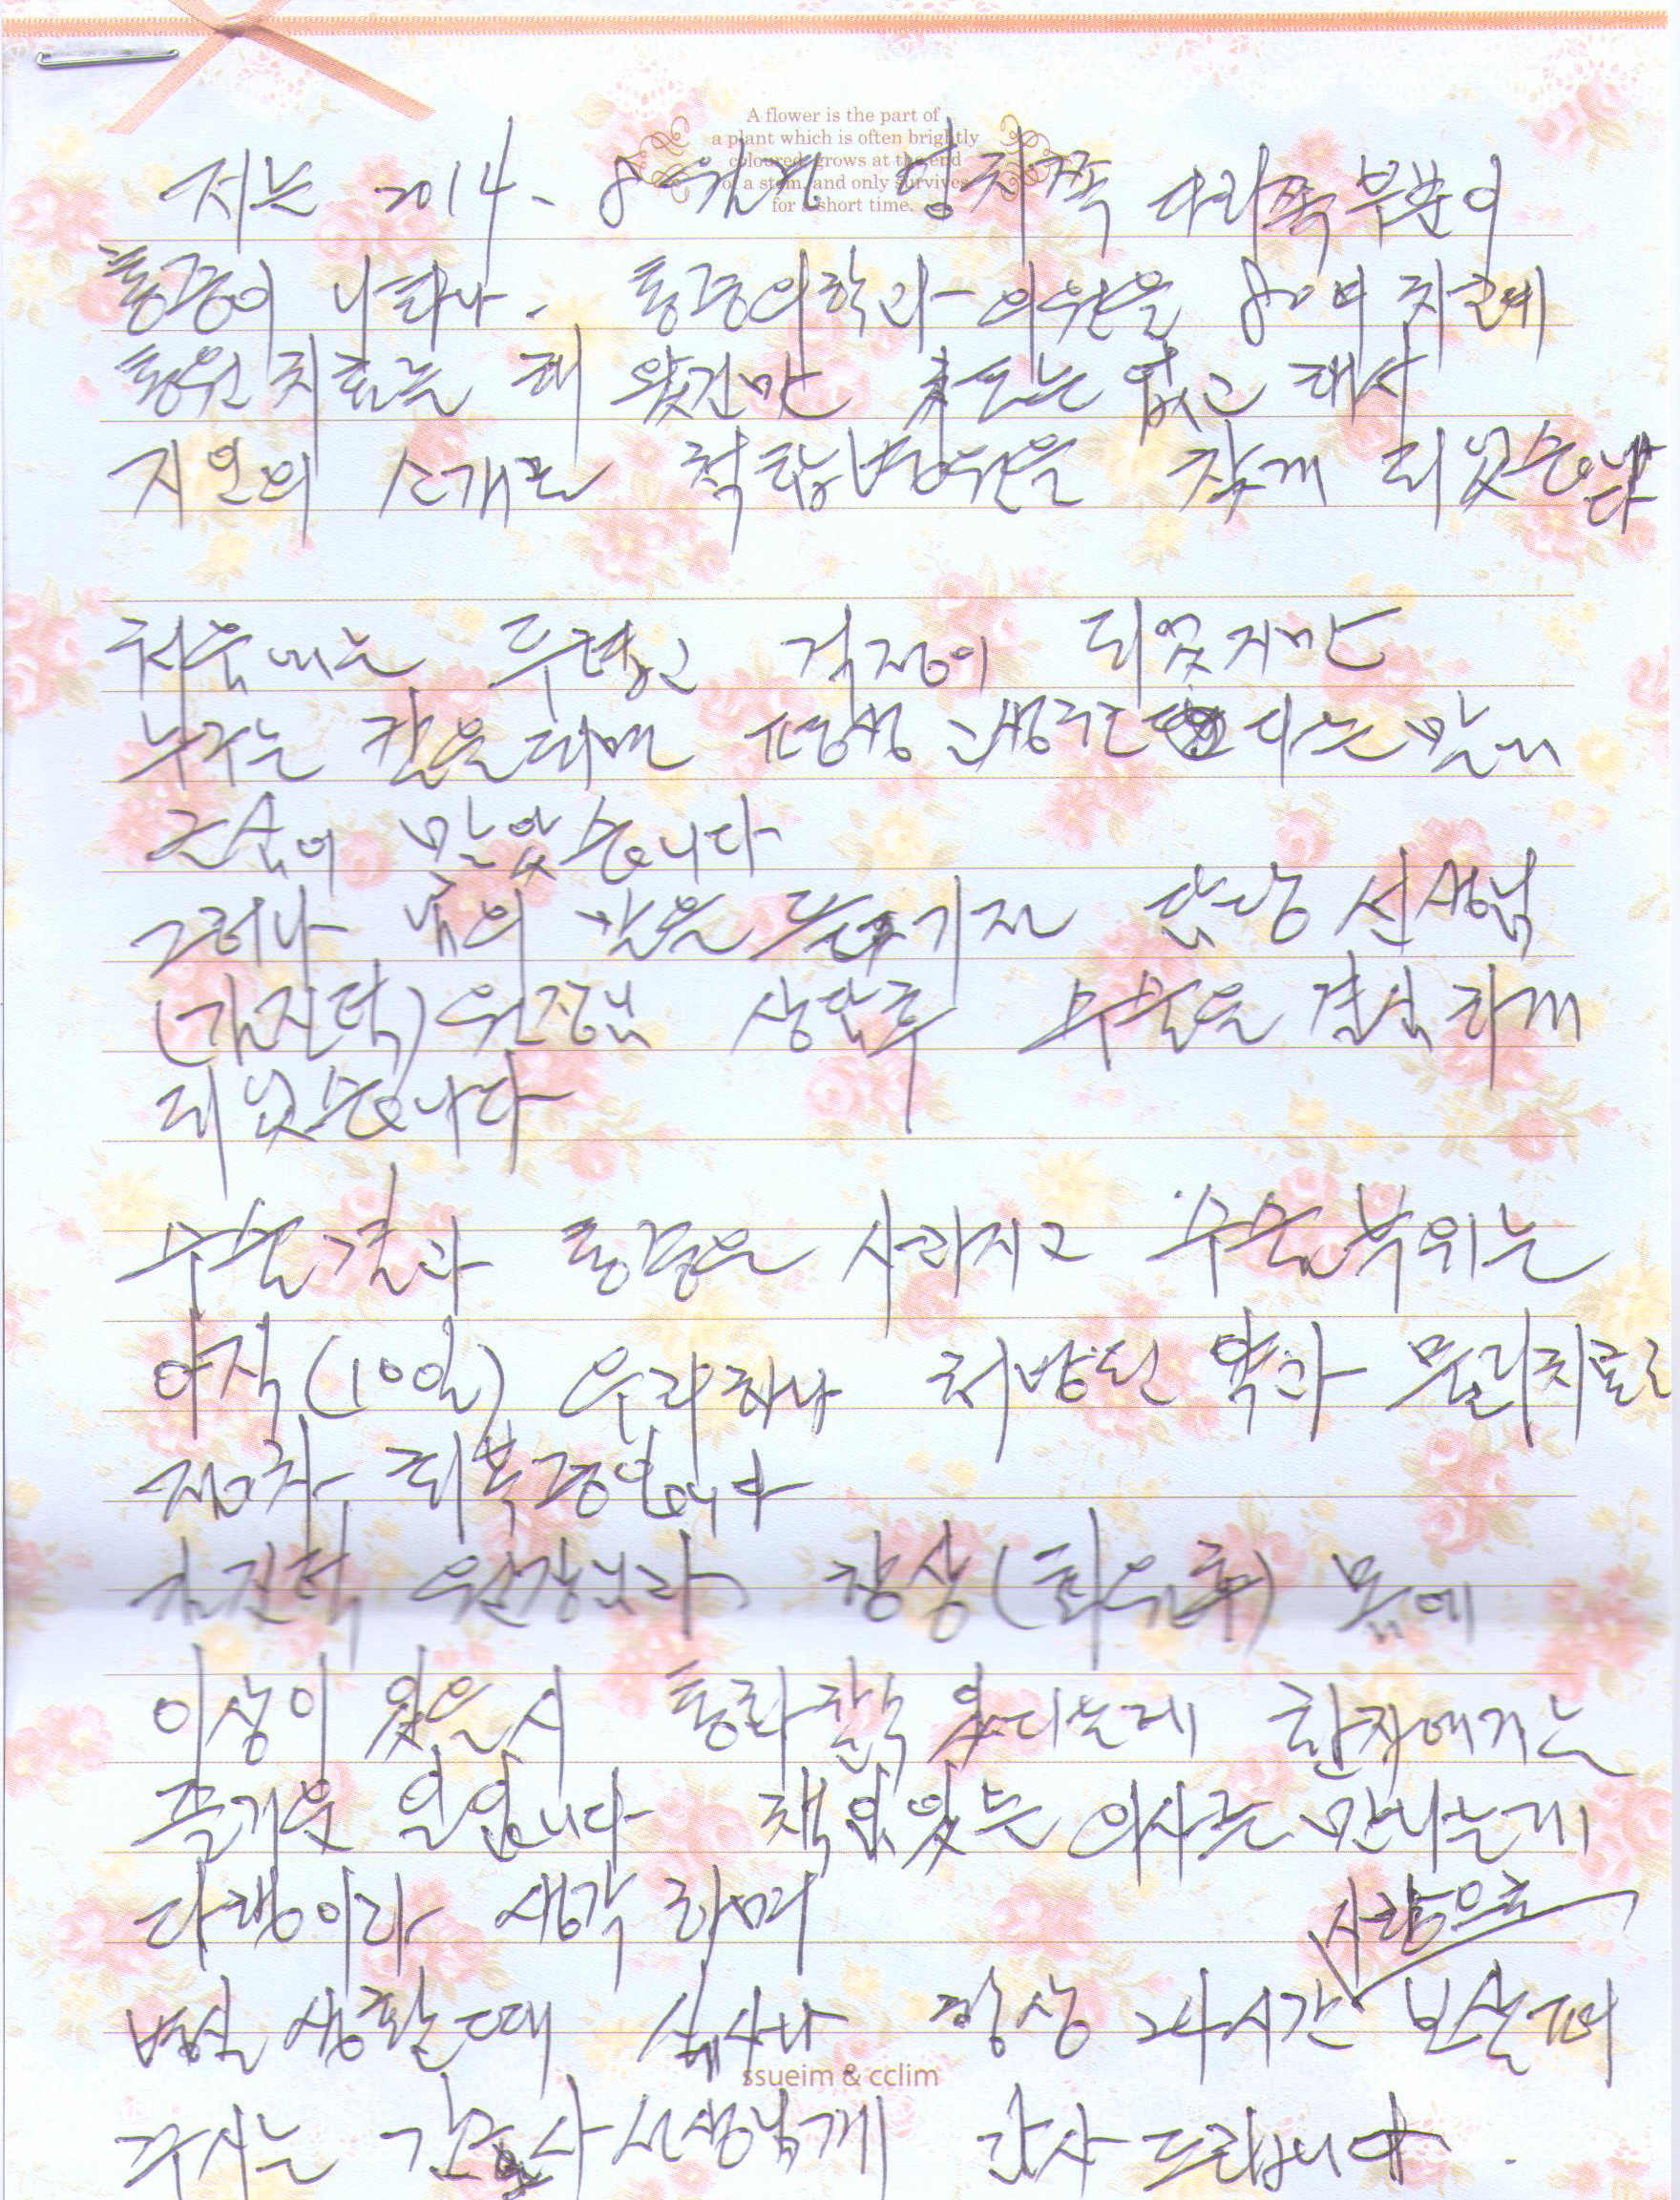 A flower is the part of
a plant which is often brightly
coloured, grows at the end
of a stem, and only survives
for a short time.
저는 2014. 8월경 양치쪽 다리쪽 부분이
통증이 나타나. 통증의학과 의원을 80여 차례
통원 치료를 해 왔건만 효도는 없고 해서
지인의 소개로 척탑병원을 찾게 되었습니다
처음에는 두렵고 걱정이 되었지만
누구는 칼을 대면 평생 고생 다는 말이
근심이 많았습니다
그러나 남의 말을 듣기전 담당 선생님
(김진덕) 원장님 상담후 수술을 결심하게
되었습니다
수술결과 통증은 사라지고 수술부위는
아직(10일) 우리하나 처방된 약과 물리치료로
점차 회복중입니다
김진덕 원장님과 항상 (퇴원후) 몸에
이상이 있을시 통화할수 있다는게 환자에게는
즐거운 일입니다 책임있는 의사를 만나는게
다행이라 생각하며
사랑으로
병실 생활할때 식사나 항상 24시간 보살펴
주시는 간호사 선생님께 감사 드립니다.
ssueim & cclim